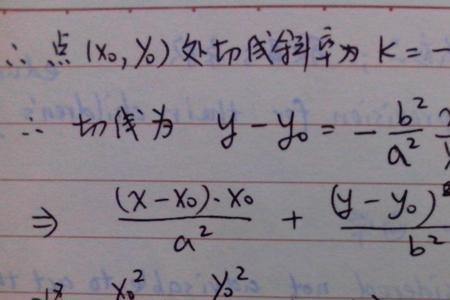 ∴ 点 (x₀, y₀) 处切线斜率为 K = −
∴ 切线为 y − y₀ = − b²/a²
⇒ (x − x₀)·x₀/a² + (y − y₀)/b²
x₀² y₀²